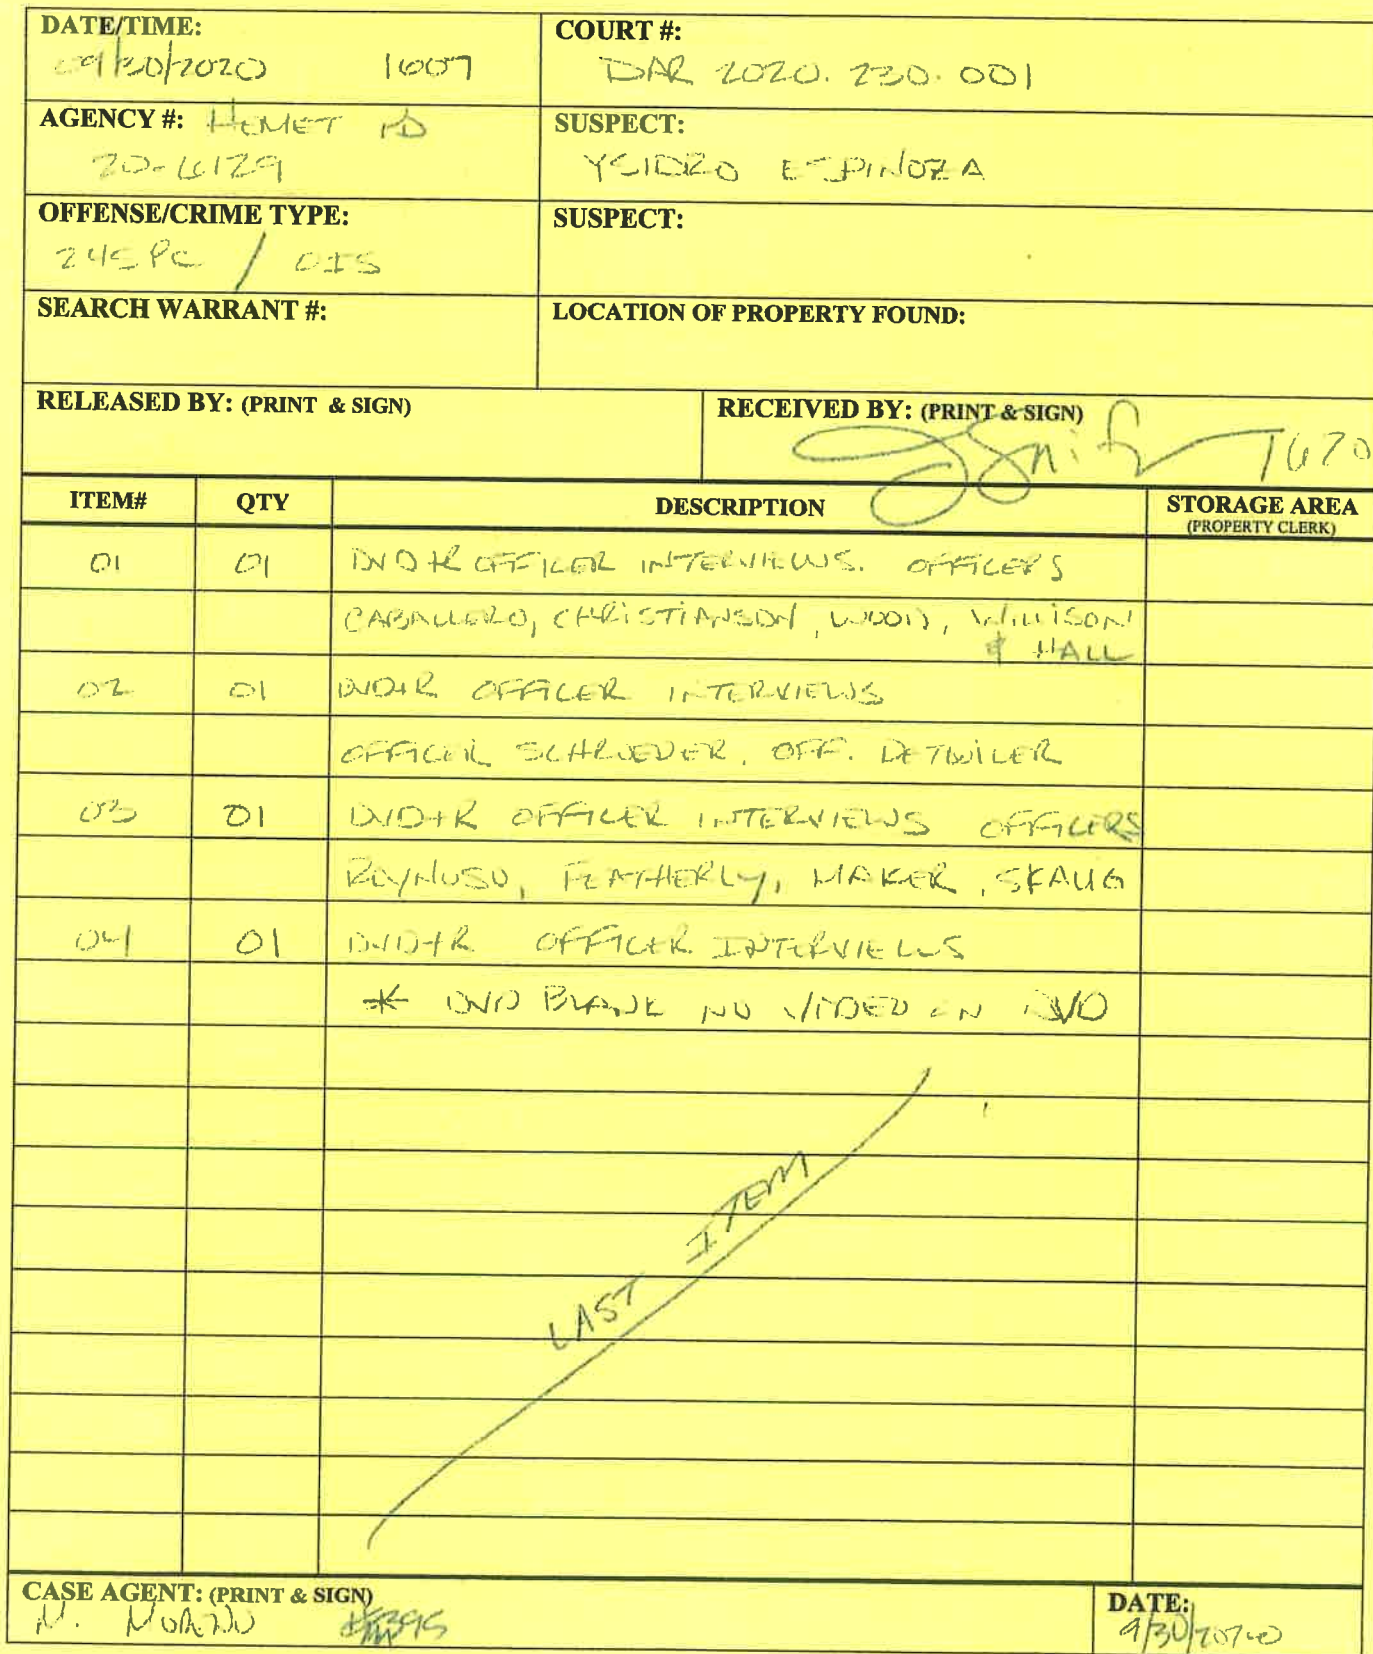 DATE/TIME:
09/30/2020 1607
COURT #:
DAR 2020.230.001
AGENCY #: HEMET PD
20-6129
SUSPECT:
YSIDRO ESPINOZA
OFFENSE/CRIME TYPE:
245 PC / OIS
SUSPECT:
SEARCH WARRANT #:
LOCATION OF PROPERTY FOUND:
RELEASED BY: (PRINT & SIGN)
RECEIVED BY: (PRINT & SIGN)
1670
ITEM# QTY DESCRIPTION STORAGE AREA
(PROPERTY CLERK)
01 01 DVD+R OFFICER INTERVIEWS. OFFICERS
CABALLERO, CHRISTIANSON, WOOD, WILLISON
& HALL
02 01 DVD+R OFFICER INTERVIEWS
OFFICER SCHROEDER, OFF. DETWILER
03 01 DVD+R OFFICER INTERVIEWS OFFICERS
REYNOSO, FEATHERLY, MAKER, SKAUG
04 01 DVD+R OFFICER INTERVIEWS
* DVD BLANK NO VIDEO ON DVD
LAST ITEM
CASE AGENT: (PRINT & SIGN)
N.
DATE:
9/30/2020